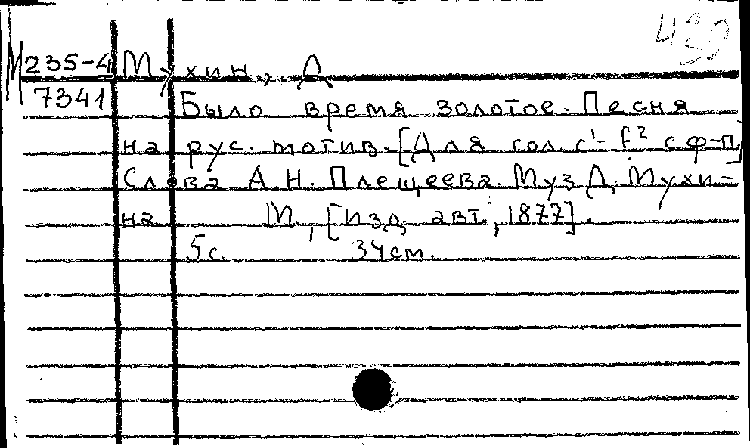 430
М 235-4 Мухин, Д
7341
Было время золотое. Песня
на рус. мотив. [Для гол. c¹-f² с ф-п]
Слова А Н. Плещеева. Муз Д. Мухи-
на М, [изд. авт., 1877].
5 с. 34 см.